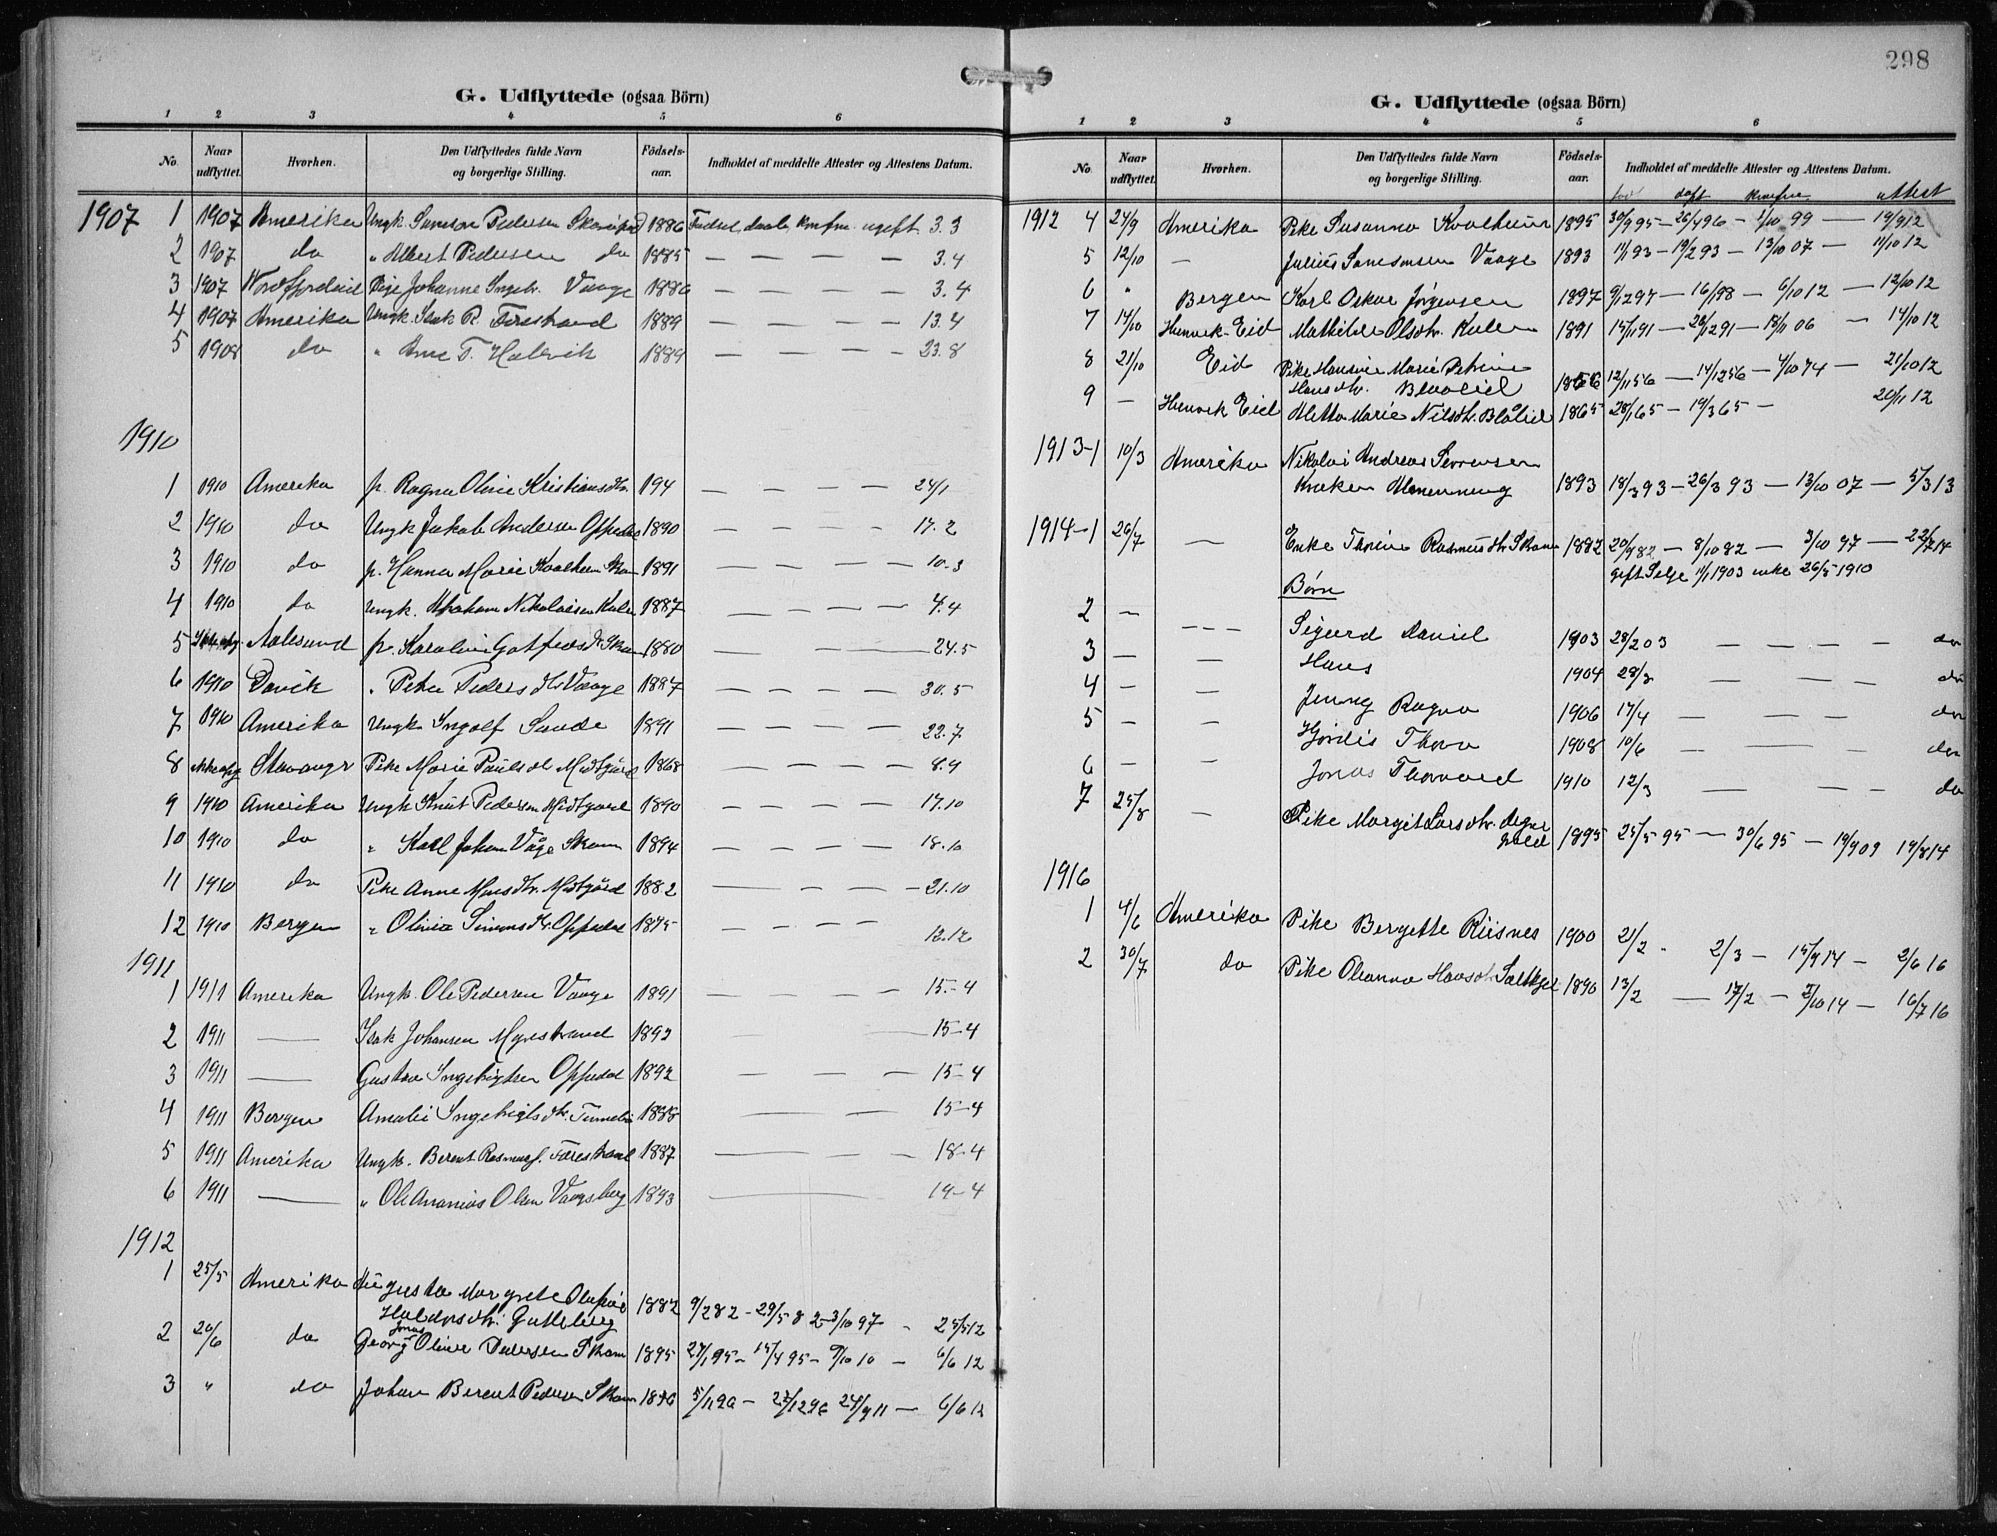 298
G. Udflyttede (ogsaa Börn)
1 2 3 4 5 6
No. Naar udflyttet. Hvorhen. Den Udflyttedes fulde Navn og borgerlige Stilling. Födsels-aar. Indholdet af meddelte Attester og Attestens Datum.
1907 1 1907 Amerika Ungk Samson Pedersen 1886 3.3
2 1907 do " Albert Pedersen do 1885 — — — — 3.4
3 1907 Pige Johanne Ingebr. Vaage 1886 — — — — 3.4
4 1907 Amerika Ungk Isak R. Förestrand 1889 — — — — 13.4
5 1908 do " Arne T. Halsvik 1889 — — — — 23.8
1910
1 1910 Amerika p. Ragna Oline Kristiansdtr. 194 — — — — 24/1
2 1910 do Ungk Jakob Andersen Oppedal 1890 — — — — 17.2
3 1910 do p. Hanna Marie Kvalheim 1891 — — — — 10.3
4 1910 do Ungk. Abraham Nikolaisen 1887 — — — — 4.4
5 Aalesund p. Karoline 1880 — — — 24.5
6 1910 Davik " Petra Pedersdtr Vaage 1887 — — — — 30.5
7 1910 Amerika Ungk Ingolf Sunde 1891 — — — — 22.7
8 Stavanger Pike Marie Paulsdtr Midtgård 1868 — — — — 8.9
9 1910 Amerika Ungk Knut Pedersen Midtgaard 1890 — — — — 17.10
10 1910 do " Karl Johan Våge Skram 1894 — — — — 18.10
11 1910 do Pike Anne Monsdtr. Midtgård 1882 — — — 21.10
12 1910 Bergen " Olivia Simonsdtr. Oppedal 1875 — — — — 12.12
1911
1 1911 Amerika Ungk. Ole Pedersen Vaage 1891 — — — — 15-4
2 1911 — Isak Johansen Myrestrand 1892 — — 15-4
3 1911 — Gustav Ingebrigtsen Oppedal 1892 — — — 15-4
4 1911 Bergen Amalie Ingebrigtsdtr. 1888 — — 15-4
5 1911 Amerika Ungk. Berent Rasmus. Förestrand 1887 — — — 18-4
6 1911 — " Ole Ananias Olsen Vaagsberg 1893 — 19-4
1912
1 25/5 Amerika Augusta Margrete
Haldorsdtr. Gulleberg 1882 9/2 82 - 29/5 82 - 3/10 97 - 25/5 12
Jonas
2 20/6 do Georg Oliver Pedersen Skram 1895 27/1 95 - 15/4 95 - 9/10 10 - 6/6 12
3 " do Johan Berent Pedersen Skram 5/11 96 - 27/12 96 24/9 11 — 6/6 12
G. Udflyttede (ogsaa Börn)
1 2 3 4 5 6
No. Naar udflyttet. Hvorhen. Den Udflyttedes fulde Navn og borgerlige Stilling. Födsels-aar. Indholdet af meddelte Attester og Attestens Datum.
född döpt konfirm attest
1912 4 24/9 Amerika Pike Susanna Kvalheim 1895 30/9 95 - 26/4 96 - 1/10 99 — 19/9 12
5 12/10 — Julius Samsonsen Vaage 1893 11/1 93 - 19/2 93 - 13/10 07 — 11/10 12
6 " Bergen Karl Oskar Jörgensen 1897 9/12 97 — 16/1 98 — 6/10 12 — 12/10 12
7 14/10 Hunvik Eid Mathilde Olsdtr. 1891 15/11 91 — 26/12 91 — 18/11 06 — 14/10 12
8 21/10 Eid Pike Hansine Marie Petrine
Hansdtr. Blaalid 1856 12/11 56 — 14/12 56 — 4/10 74 — 21/10 12
9 — Hunvik Eid Mette Marie Nilsdtr. Blålid 1865 28/1 65 — 19/3 65 — 20/11 12
1913-1 10/3 Amerika Nikolai Andreas Severinsen
1893 18/3 93 - 26/3 93 — 13/10 07 — 5/3 13
1914-1 26/7 — Enke Thrine Rasmusdtr. Skram 1882 20/9 82 — 8/10 82 — 3/10 97 — 22/7 14
gift Selje 11/1 1903 enke 26/5 1910
Börn
2 — — — — Sigurd Daniel 1903 28/2 03 — — — — do
3 — — Hans 1904 28/3 — — — do
4 — — Jenny Ragna 1906 17/4 — — — — do
5 — — Hjördis Thora 1908 10/6 — — — — do
6 — — Jonas Thorvald 1910 12/3 — — — do
7 25/8 — Pike Margit Larsdtr. 1895 25/5 95 — 30/6 95 — 19/9 09 19/8 14
1916
1 4/6 Amerika Pike Bergette Riisnes 1900 21/2 - 2/3 — 15/9 14 — 2/6 16
2 30/7 do Pike Oleanna Hansdtr. 1890 13/2 — 17/2 — 2/10 14 — 16/7 16